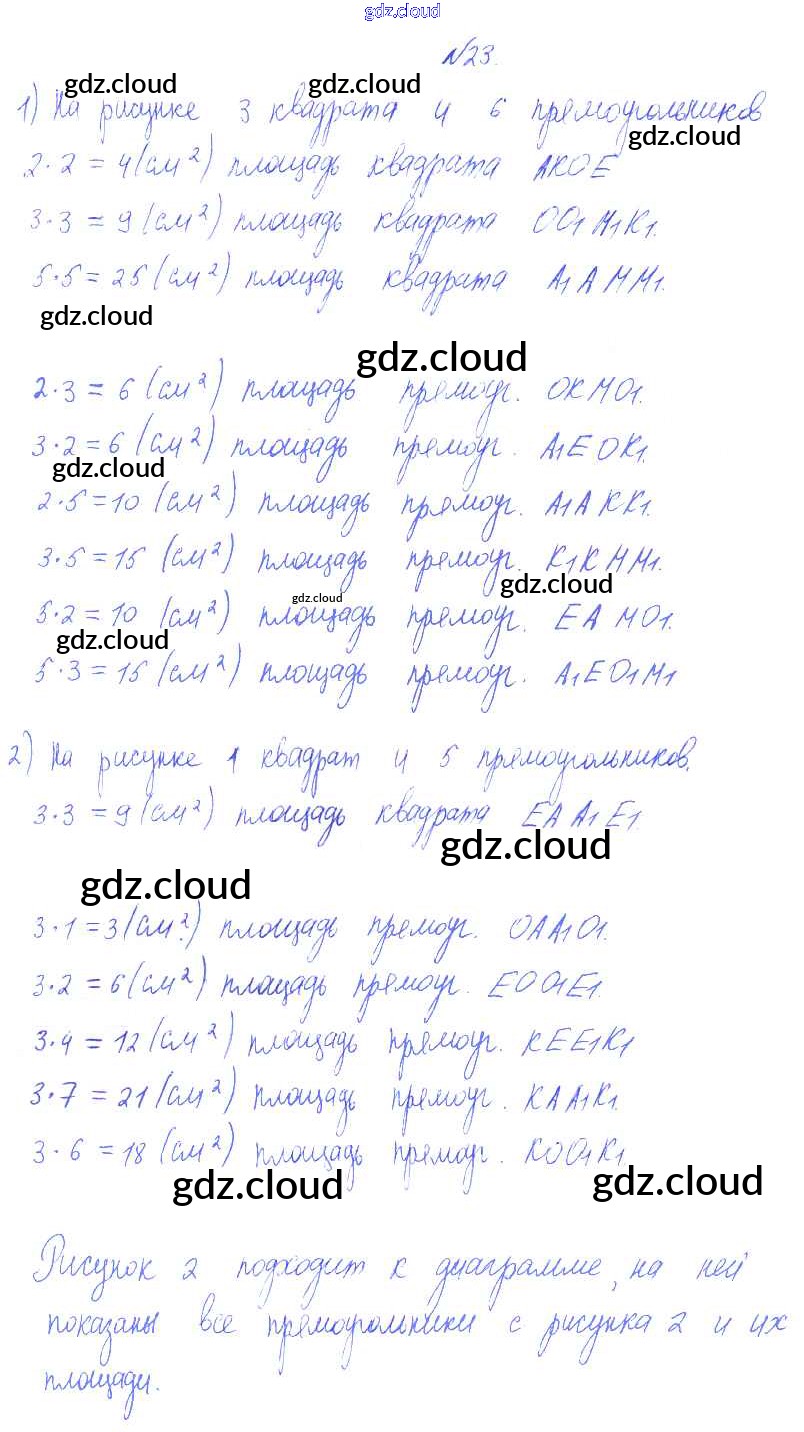 gdz.cloud
№23.
gdz.cloud gdz.cloud
1) На рисунке 3 квадрата и 6 прямоугольников
gdz.cloud
2·2 = 4 (см²) площадь квадрата АКОЕ
3·3 = 9 (см²) площадь квадрата ОО₁М₁К₁.
5·5 = 25 (см²) площадь квадрата А₁АММ₁.
gdz.cloud
gdz.cloud
2·3 = 6 (см²) площадь прямоуг. ОКМО₁.
3·2 = 6 (см²) площадь прямоуг. А₁ЕОК₁.
gdz.cloud
2·5 = 10 (см²) площадь прямоуг. А₁АКК₁.
3·5 = 15 (см²) площадь прямоуг. К₁КММ₁.
gdz.cloud
gdz.cloud
5·2 = 10 (см²) площадь прямоуг. ЕАМО₁.
gdz.cloud
5·3 = 15 (см²) площадь прямоуг. А₁ЕО₁М₁
2) На рисунке 1 квадрат и 5 прямоугольников.
3·3 = 9 (см²) площадь квадрата ЕАА₁Е₁.
gdz.cloud
gdz.cloud
3·1 = 3 (см²) площадь прямоуг. ОАА₁О₁.
3·2 = 6 (см²) площадь прямоуг. ЕОО₁Е₁.
3·4 = 12 (см²) площадь прямоуг. КЕЕ₁К₁
3·7 = 21 (см²) площадь прямоуг. КАА₁К₁.
3·6 = 18 (см²) площадь прямоуг. КОО₁К₁
gdz.cloud gdz.cloud
Рисунок 2 подходит к диаграмме, на ней
показаны все прямоугольники с рисунка 2 и их
площади.